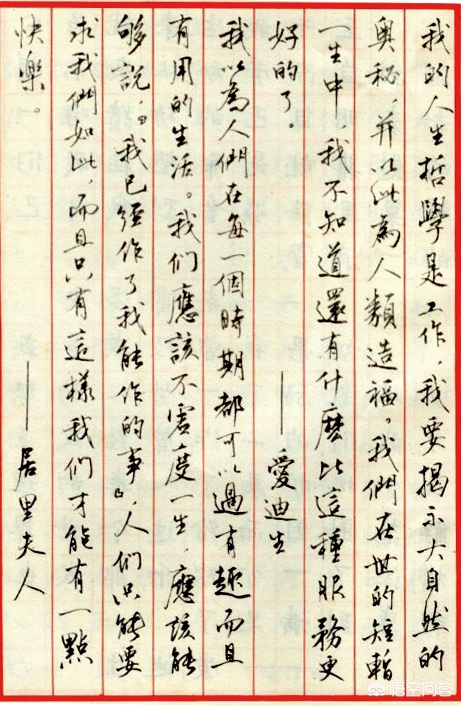 我的人生哲學是工作，我要揭示大自然的
奥秘，并以此為人類造福。我們在世的短暫
一生中，我不知道還有什麽比這種服務更
好的了。
——愛迪生
我以為人們在每一個時期都可以過有趣而且
有用的生活。我们應該不虚度一生，應該能
够說，“我已經作了我能作的事”，人们只能要
求我們如此，而且只有這樣我们才能有一點
快樂。
——居里夫人
悟空问答